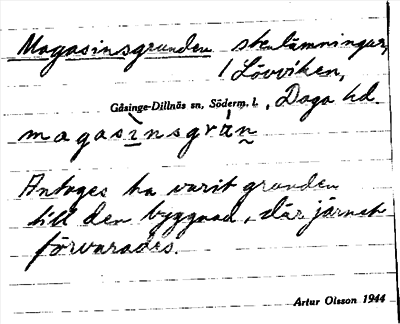 Magasinsgrunden stenlämningar,
/ Lövviken,
Gåsinge-Dillnäs sn, Söderm. l., Daga hd.
magasìnsgrún
Antages ha varit grunden
till den byggnad, där järnet
förvarades.
Artur Olsson 1944